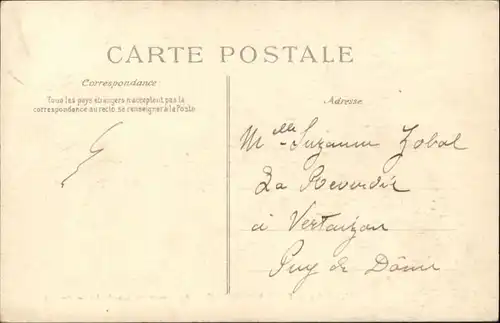 CARTE POSTALE
Correspondance
Tous les pays étrangers n'acceptent pas la
correspondance au recto, se renseigner à la Poste
Adresse
Melle Suzanne Zobal
La Reverdie
à Vertaizon
Puy de Dôme